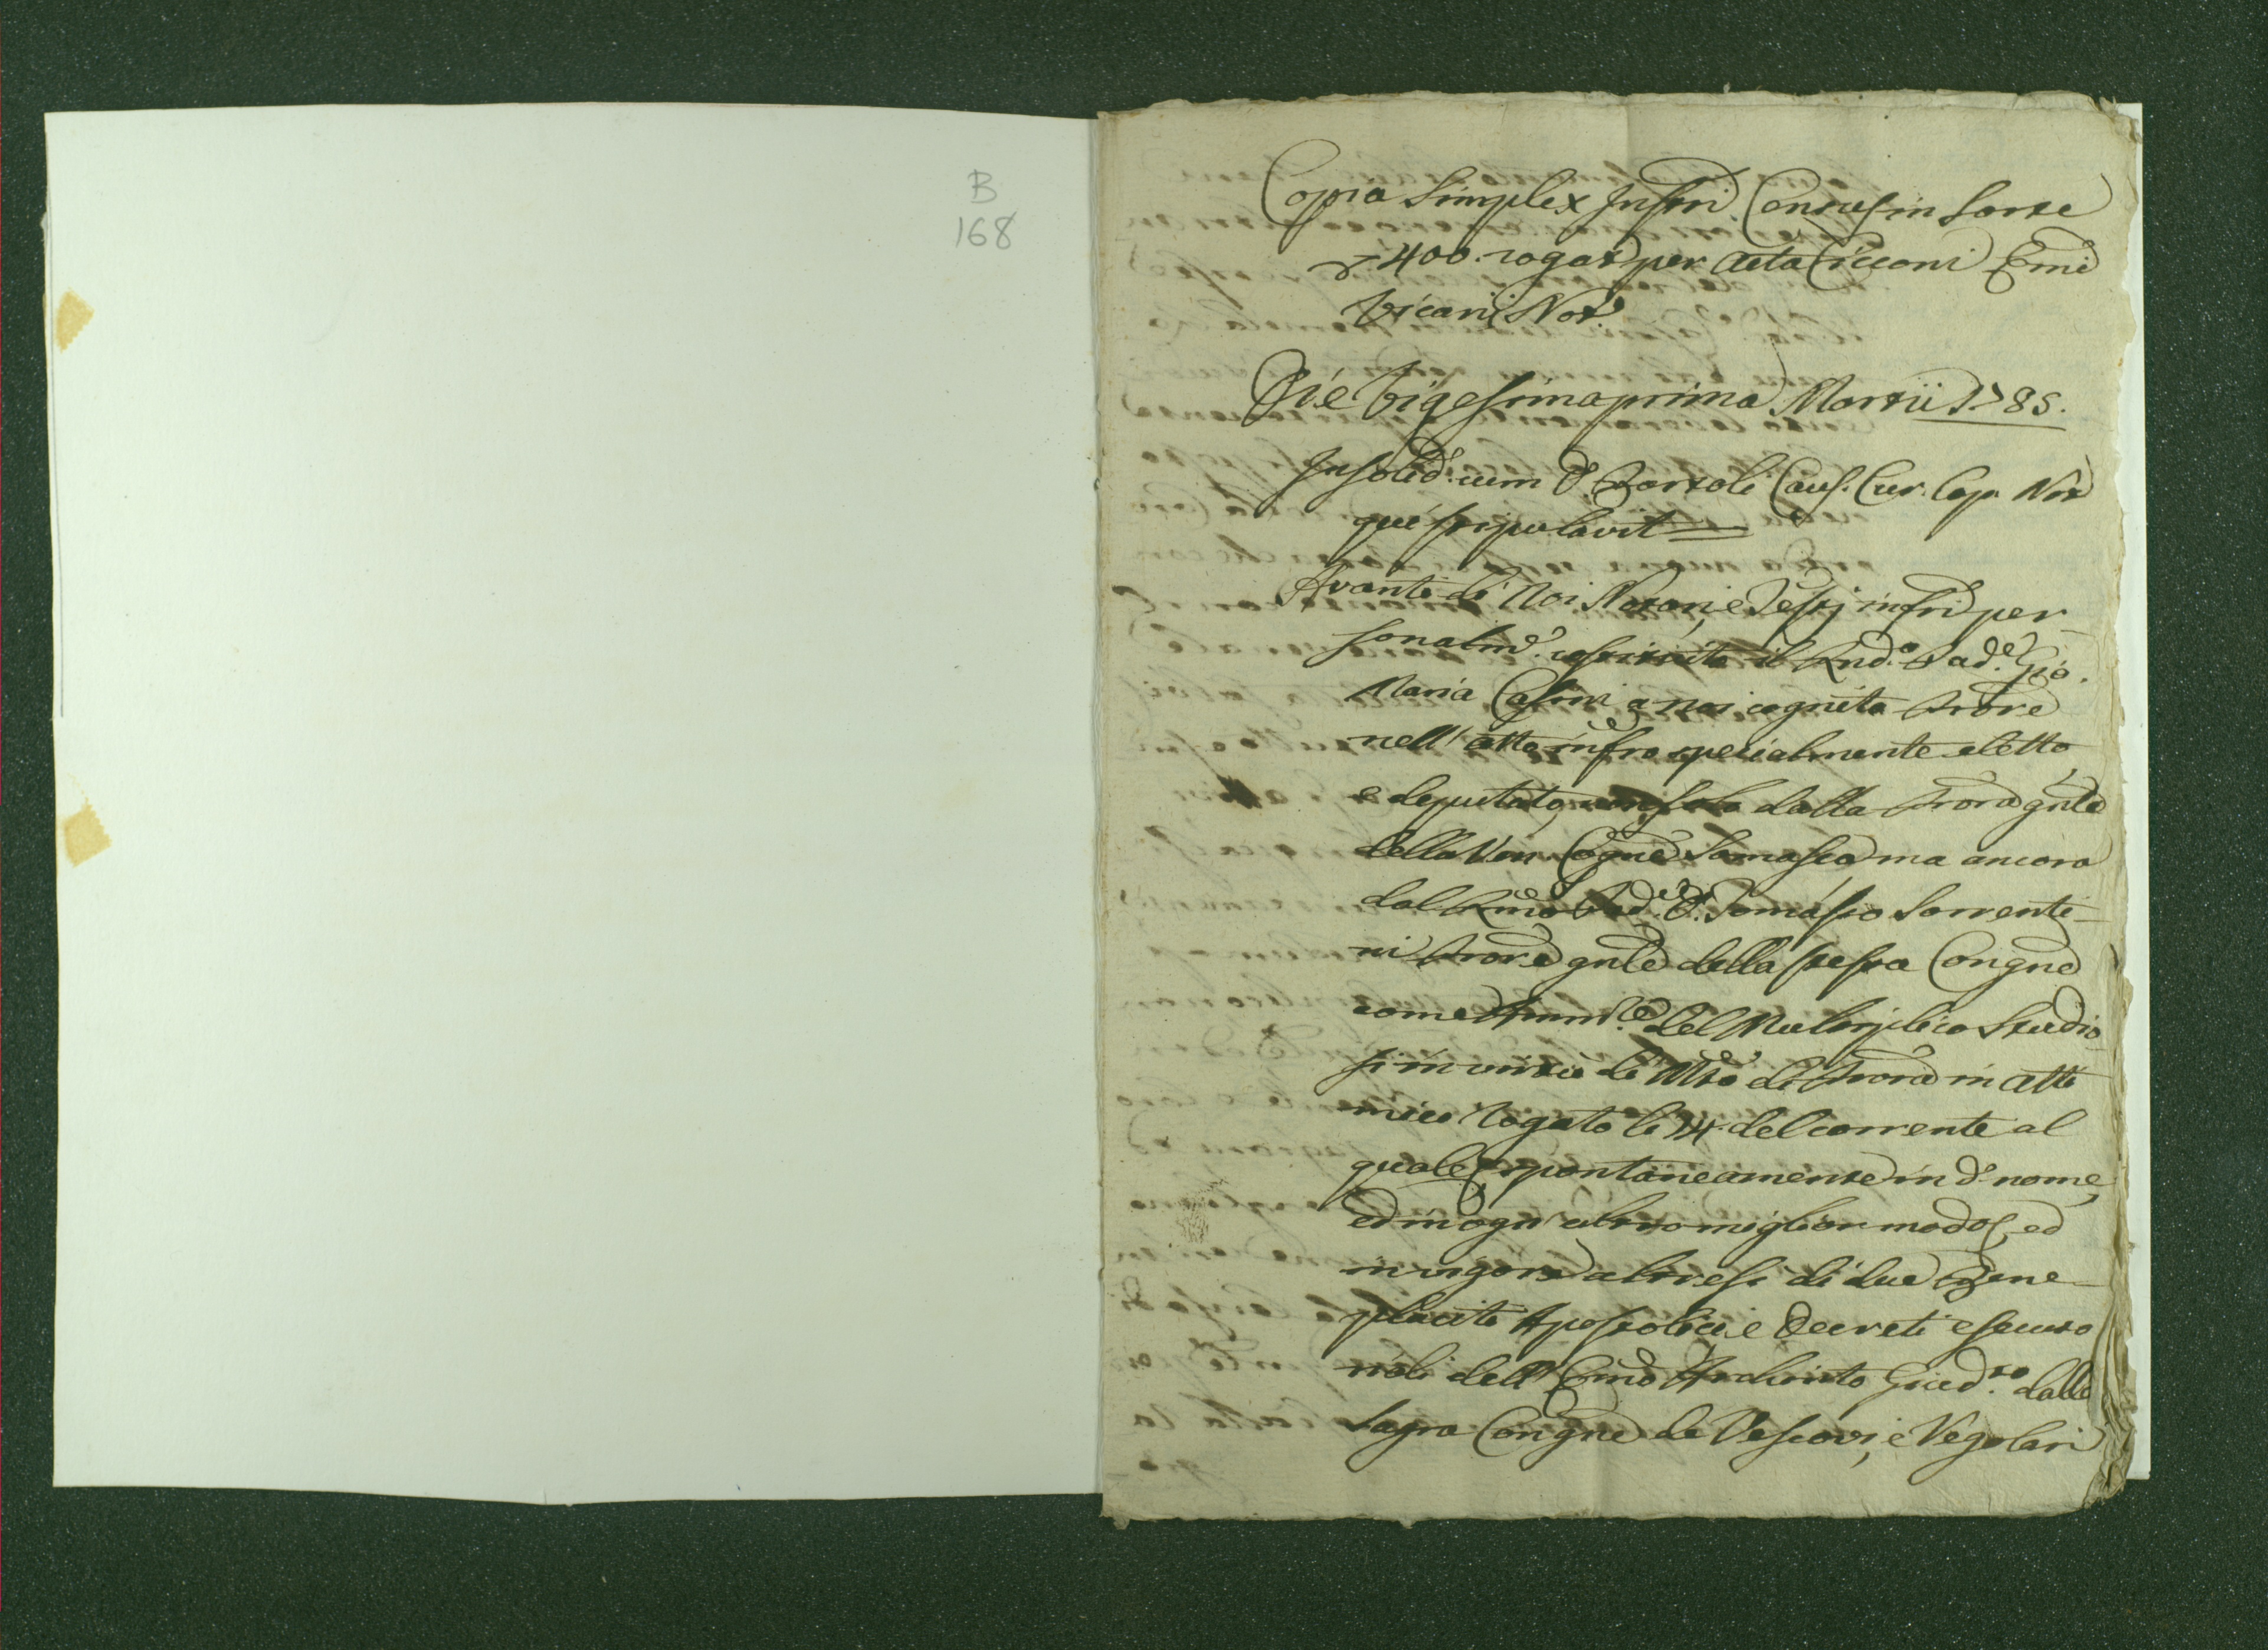 B
168
Copia Simplex Instri Census in Sorte
∇ 400. rogat per Acta Cicconi Emi
Vicarij Not.
Die Vigesimaprima Martii 1785.
In solid. cum D. Bortoli Caus. Cur. Cap. Not
qui stipulavit
Avanti di Noi Notari, e Testj infri per
sonalm.e costituito il Rnd.o Pad.e Gio.
Maria Casini a noi cognito Prore
nell' atto infro specialmente eletto,
e deputato, non solo dalla Prora gnle
della Ven. Cogne Somasca ma ancora
dal Rmo Pad.e D. Tomaso Sorrenti-
ni Prore gnle della stessa Congne
come Ammre del Multiplico Studio
si in virtù di Mto di Prora in atti
miei rogato li 14. del corrente al
quale, spontaneamente in d.o nome,
ed in ogni altro miglior modo, ed
in vigore altresi di due Bene-
placiti Apostolici e Decreti esecuto
riali dell' Emo Archinto Giud. dalla
Sagra Congne de Vescovi, e Regolari